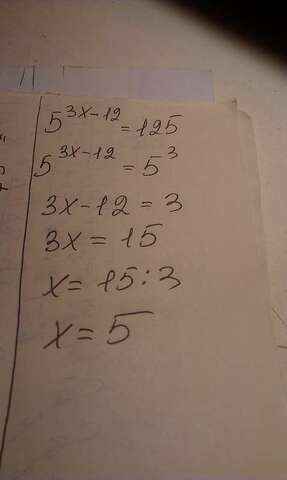 5^{3x-12} = 125
5^{3x-12} = 5^3
3x-12 = 3
3x = 15
x = 15:3
x = 5